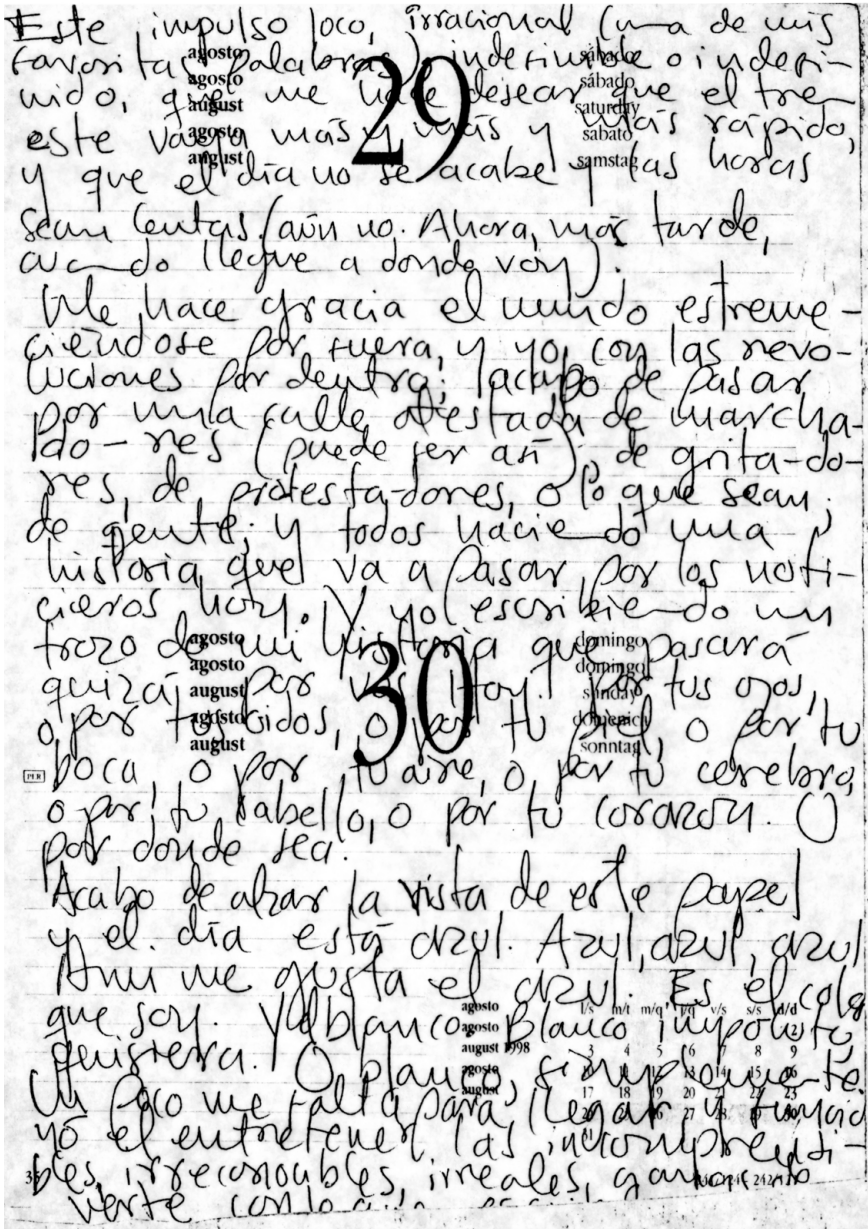 Este impulso loco, irracional (una de mis
favoritas palabras), indefinible o indefi-
nido, que me hace desear que el tren
este vaya más y más y más rápido,
y que el día no se acabe y las horas
sean lentas. (aún no. Ahora, más tarde,
cuando llegue a donde voy).
Me hace gracia el mundo estreme-
ciéndose por fuera, y yo, con las revo-
luciones por dentro: acabo de pasar
por una calle atestada de marcha-
do-res (puede ser así), de grita-do-
res, de protesta-dores, o lo que sean;
de gente; y todos haciendo una
historia que va a pasar por los noti-
cieros hoy. Y yo escribiendo un
trozo de mi historia que pasará
quizá por vos hoy. Por tus ojos,
o por tus oídos, o por tu piel, o por tu
boca, o por tu aire, o por tu cerebro,
o por tu cabello, o por tu corazón. O
por donde sea.
Acabo de alzar la vista de este papel
y el día está azul. Azul, azul, azul
A mí me gusta el azul. Es el color
que soy. Y el blanco. Blanco impoluto
quisiera. O blanco, simplemente.
Un poco me falta para llegar y funcio
nó el entretener las incomprensi-
bles, irreconocibles, irreales, ganas
verte con
agosto
agosto
august
agosto
august
29
sábado
sábado
saturday
sabato
samstag
agosto
agosto
august
agosto
august
30
domingo
domingo
sunday
domenica
sonntag
PLR
agosto
agosto
august 1998
agosto
august
l/s m/t m/q j/g v/s s/s d/d
1 2
3 4 5 6 7 8 9
10 11 12 13 14 15 16
17 18 19 20 21 22 23
24 25 26 27 28 29 30
31